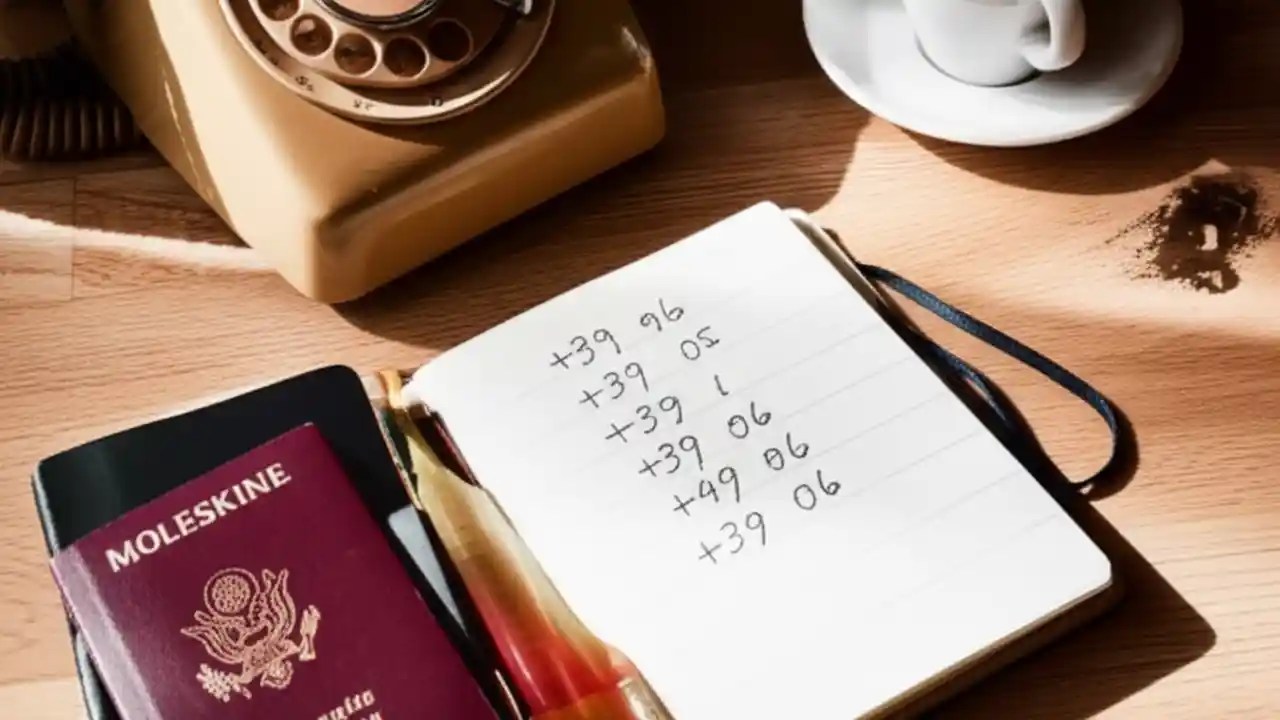 +39 96
+39 05
+39 1
+39 06
+49 06
+39 06
MOLESKINE